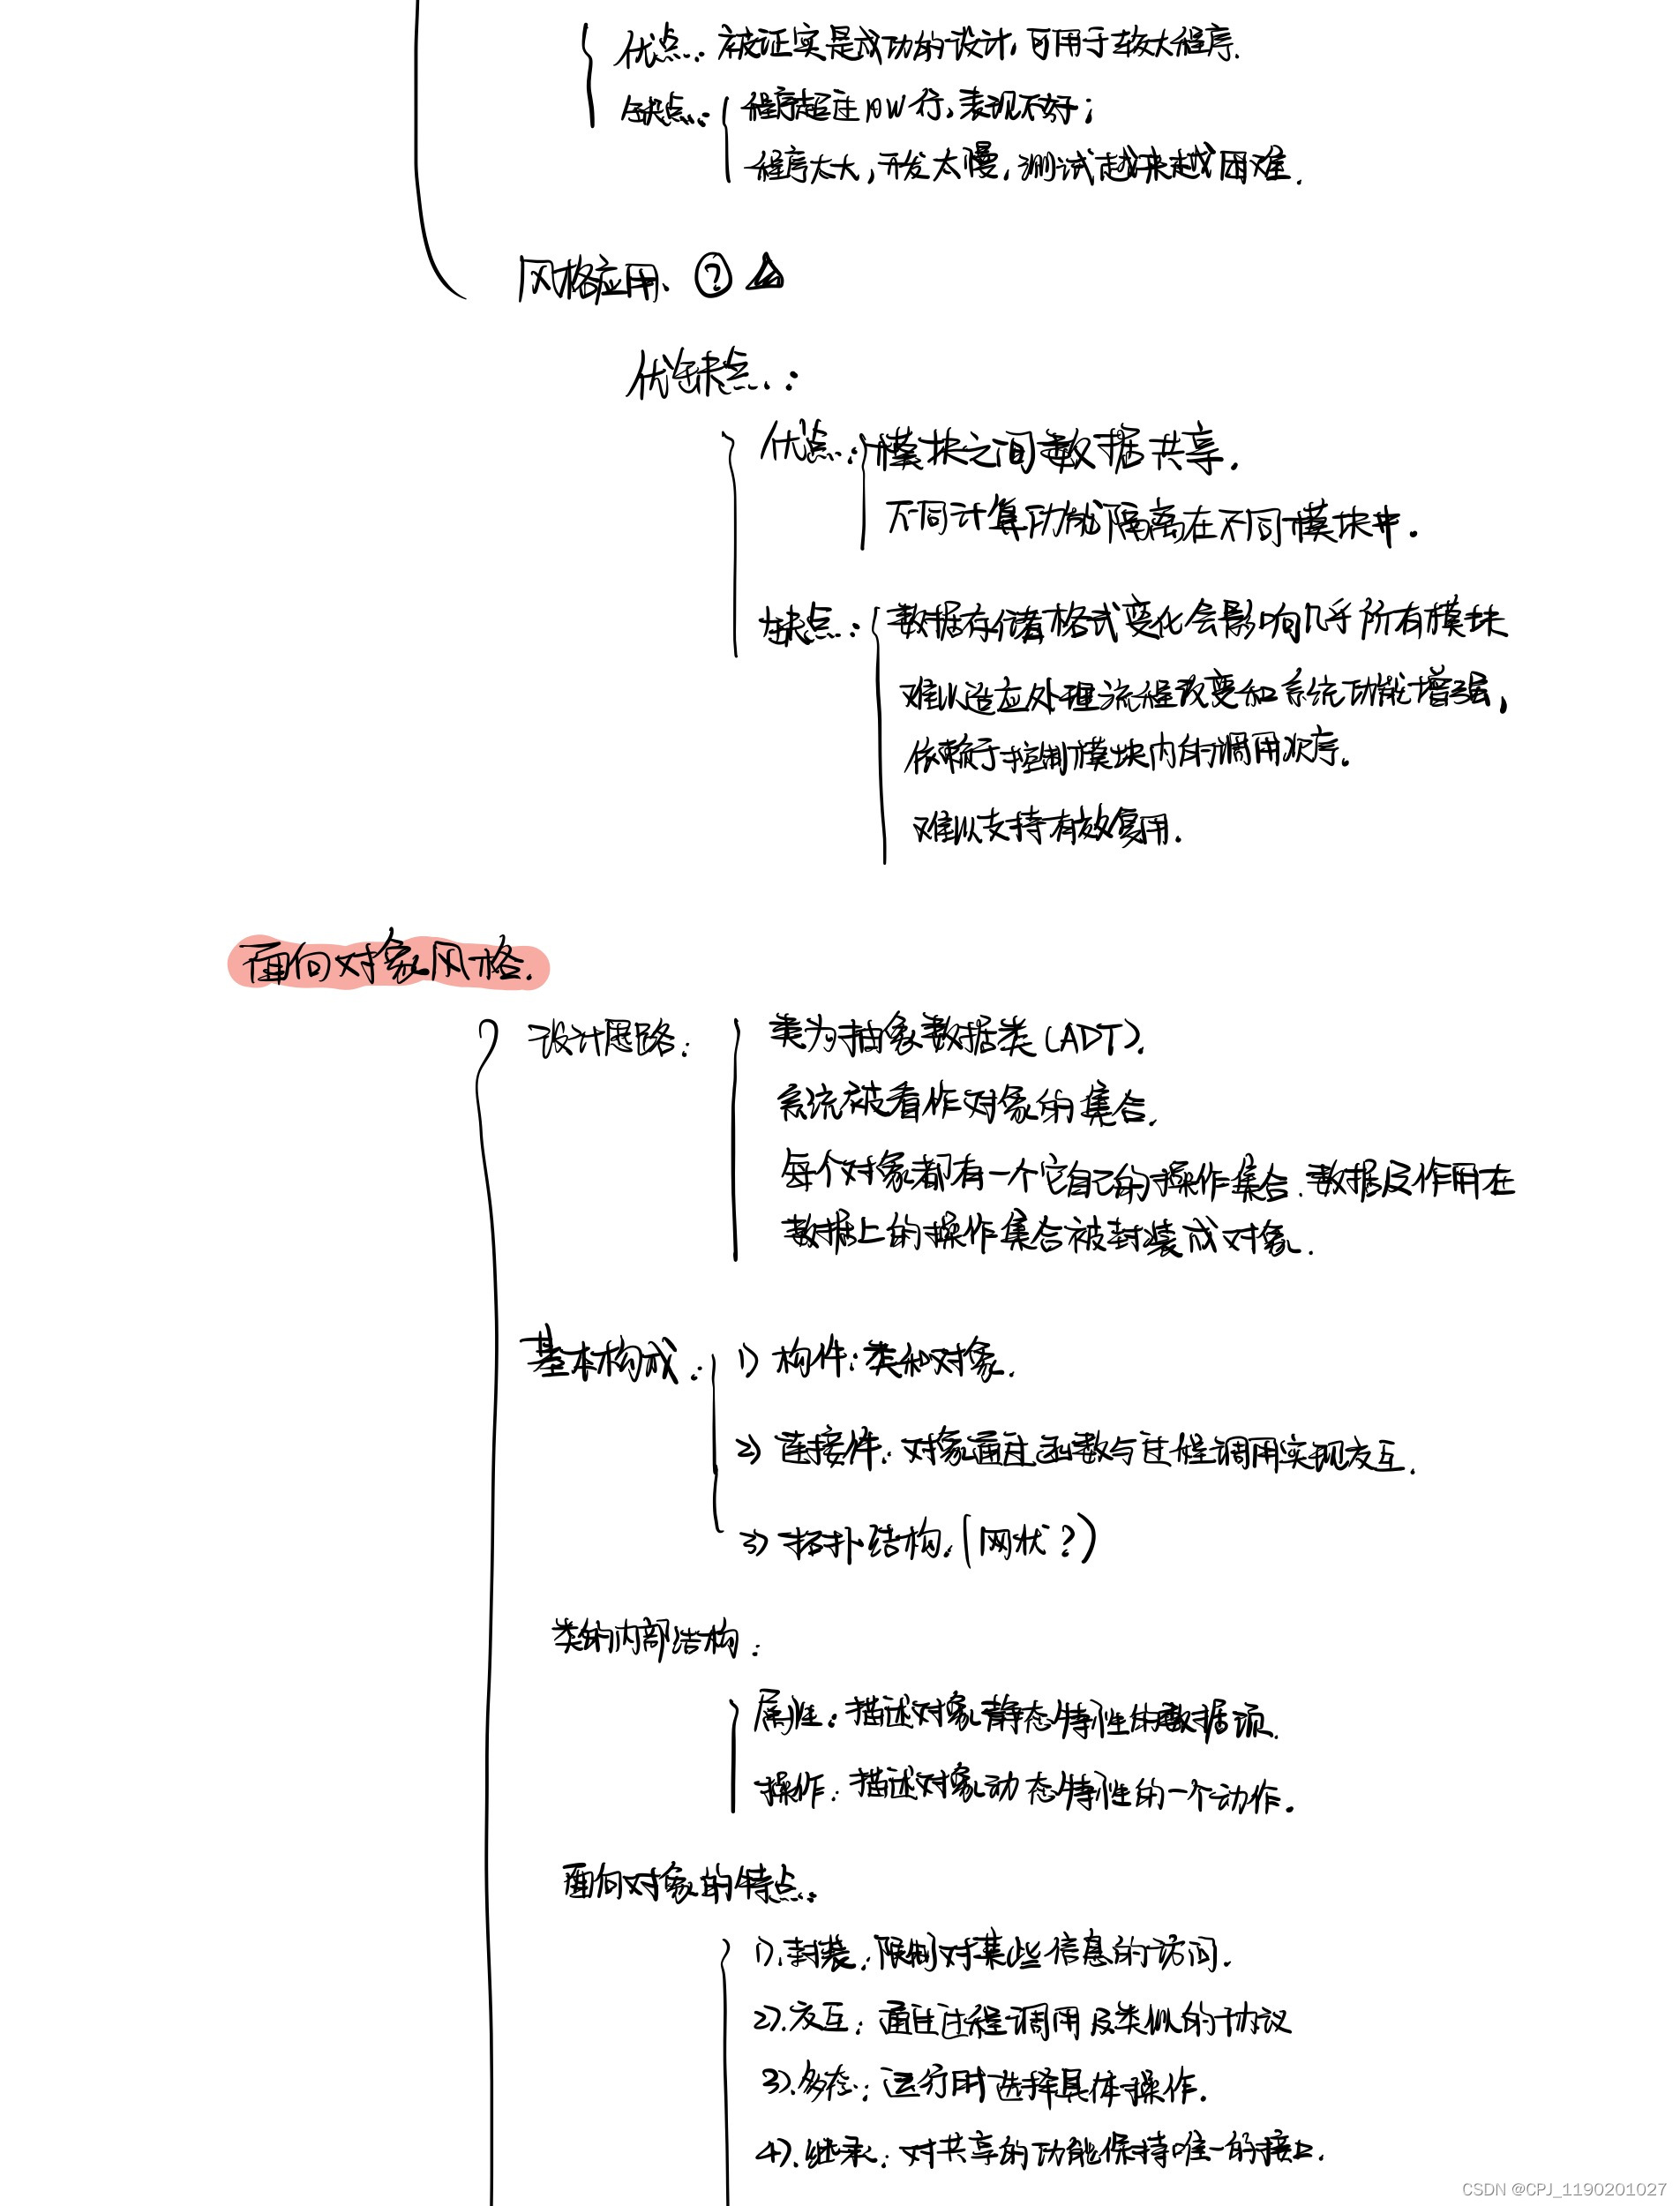 优点: 被证实是成功的设计, 可用于较大程序.
缺点: 程序超过10W行, 表现不好;
程序太大, 开发太慢, 测试越来越困难.
风格应用. ?
优缺点:
优点: 模块之间数据共享.
不同计算功能隔离在不同模块中.
缺点: 数据存储格式变化会影响几乎所有模块
难以适应处理流程改变和系统功能增强,
依赖于控制模块内的调用次序.
难以支持有效复用.
面向对象风格.
设计思路: 类为抽象数据类(ADT).
系统被看作对象的集合.
每个对象都有一个它自己的操作集合. 数据及作用在
数据上的操作集合被封装成对象.
基本构成: 1) 构件: 类和对象.
2) 连接件: 对象通过函数与过程调用实现交互.
3) 拓扑结构. (网状?)
类的内部结构:
属性: 描述对象静态特性的数据项.
操作: 描述对象动态特性的一个动作.
面向对象的特点:
1). 封装: 限制对某些信息的访问.
2). 交互: 通过过程调用及类似的协议
3). 多态: 运行时选择具体操作.
4). 继承: 对共享的功能保持唯一的接口.
CSDN @CPJ_1190201027